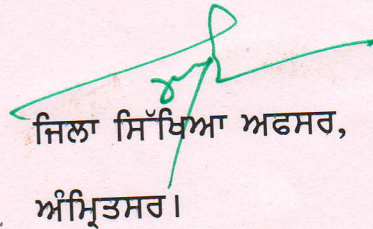 ਜਿਲਾ ਸਿੱਖਿਆ ਅਫਸਰ,
ਅੰਮ੍ਰਿਤਸਰ।